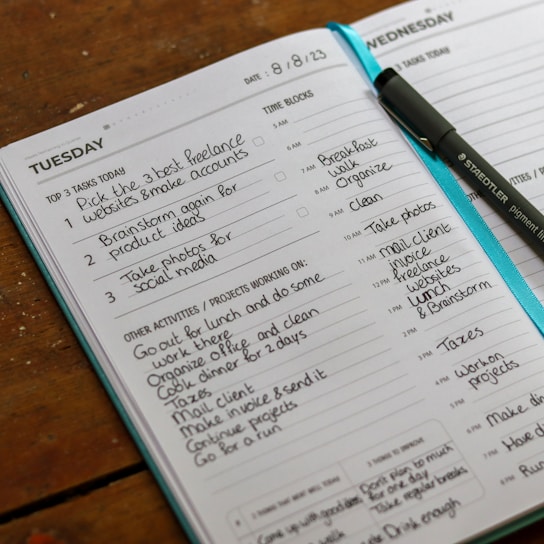 DATE : 8/8/23
TUESDAY
TOP 3 TASKS TODAY
1 Pick the 3 best freelance
websites & make accounts
2 Brainstorm again for
product ideas
3 Take photos for
social media
OTHER ACTIVITIES / PROJECTS WORKING ON:
Go out for lunch and do some
work there
Organize office and clean
Cook dinner for 2 days
Taxes
Mail client
Make invoice & send it
Continue projects
Go for a run
TIME BLOCKS
5 AM
6 AM
7 AM Breakfast
walk
8 AM Organize
9 AM Clean
10 AM Take photos
11 AM mail client
invoice
12 PM freelance
websites
1 PM lunch
& Brainstorm
2 PM
3 PM Taxes
4 PM work on
projects
5 PM
6 PM Make din
7 PM Have di
8 PM Run
3 THINGS THAT WENT WELL TODAY
Came up with good ideas
walk
3 THINGS TO IMPROVE
Don't plan to much
for one day
Take regular breaks
Drink enough
WEDNESDAY
3 TASKS TODAY
/ PR
STAEDTLER
pigment lin